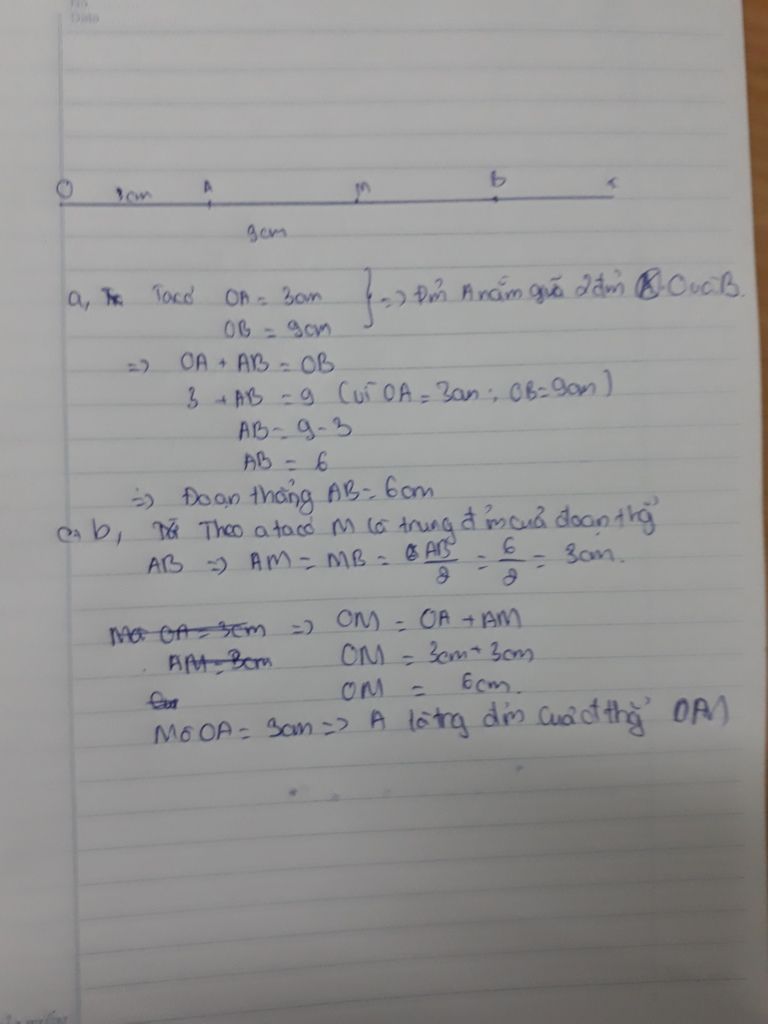 Date
O 3cm A M B x
9cm
a, Ta có OA = 3cm } => Đm A nằm giữa 2 đm O và B.
OB = 9cm
=> OA + AB = OB
3 + AB = 9 (vì OA = 3cm; OB = 9cm)
AB = 9 - 3
AB = 6
=> Đoạn thẳng AB = 6cm
b, Theo a ta có M là trung đ'm của đoạn thg
AB => AM = MB = AB/2 = 6/2 = 3cm.
Mà OA = 3cm => OM = OA + AM
AM = 3cm OM = 3cm + 3cm
OM = 6cm.
Mà OA = 3cm => A là trg đ'm của đ thg OM